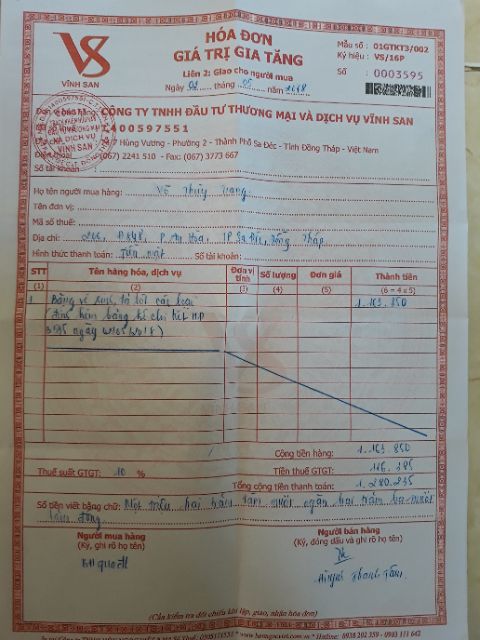 VS
VĨNH SAN
HÓA ĐƠN
GIÁ TRỊ GIA TĂNG
Liên 2: Giao cho người mua
Ngày 04 tháng 05 năm 2018
Mẫu số : 01GTKT3/002
Ký hiệu : VS/16P
Số : 0003595
CÔNG TY TNHH ĐẦU TƯ THƯƠNG MẠI VÀ DỊCH VỤ VĨNH SAN
1400597551
Hùng Vương - Phường 2 - Thành Phố Sa Đéc - Tỉnh Đồng Tháp - Việt Nam
Điện thoại: (067) 2241 510 - Fax: (067) 3773 667
Số tài khoản:
Họ tên người mua hàng: Võ Thùy Trang
Tên đơn vị:
Mã số thuế:
Địa chỉ: P. An Hòa, TP Sa Đéc, Đồng Tháp
Hình thức thanh toán: Tiền mặt Số tài khoản:
STT Tên hàng hóa, dịch vụ Đơn vị tính Số lượng Đơn giá Thành tiền
(1) (2) (3) (4) (5) (6 = 4x5)
1 Băng vệ sinh, tã lót các loại 1.163.850
(Đính kèm bảng kê chi tiết HĐ
3595 ngày 04/05/2018)
Cộng tiền hàng: 1.163.850
Thuế suất GTGT: 10 % Tiền thuế GTGT: 116.385
Tổng cộng tiền thanh toán: 1.280.235
Số tiền viết bằng chữ: Một triệu hai trăm tám mươi ngàn hai trăm ba mươi
lăm đồng
Người mua hàng
(Ký, ghi rõ họ tên)
Người bán hàng
(Ký, đóng dấu và ghi rõ họ tên)
Huỳnh Thanh
(Cần kiểm tra đối chiếu khi lập, giao, nhận hóa đơn)